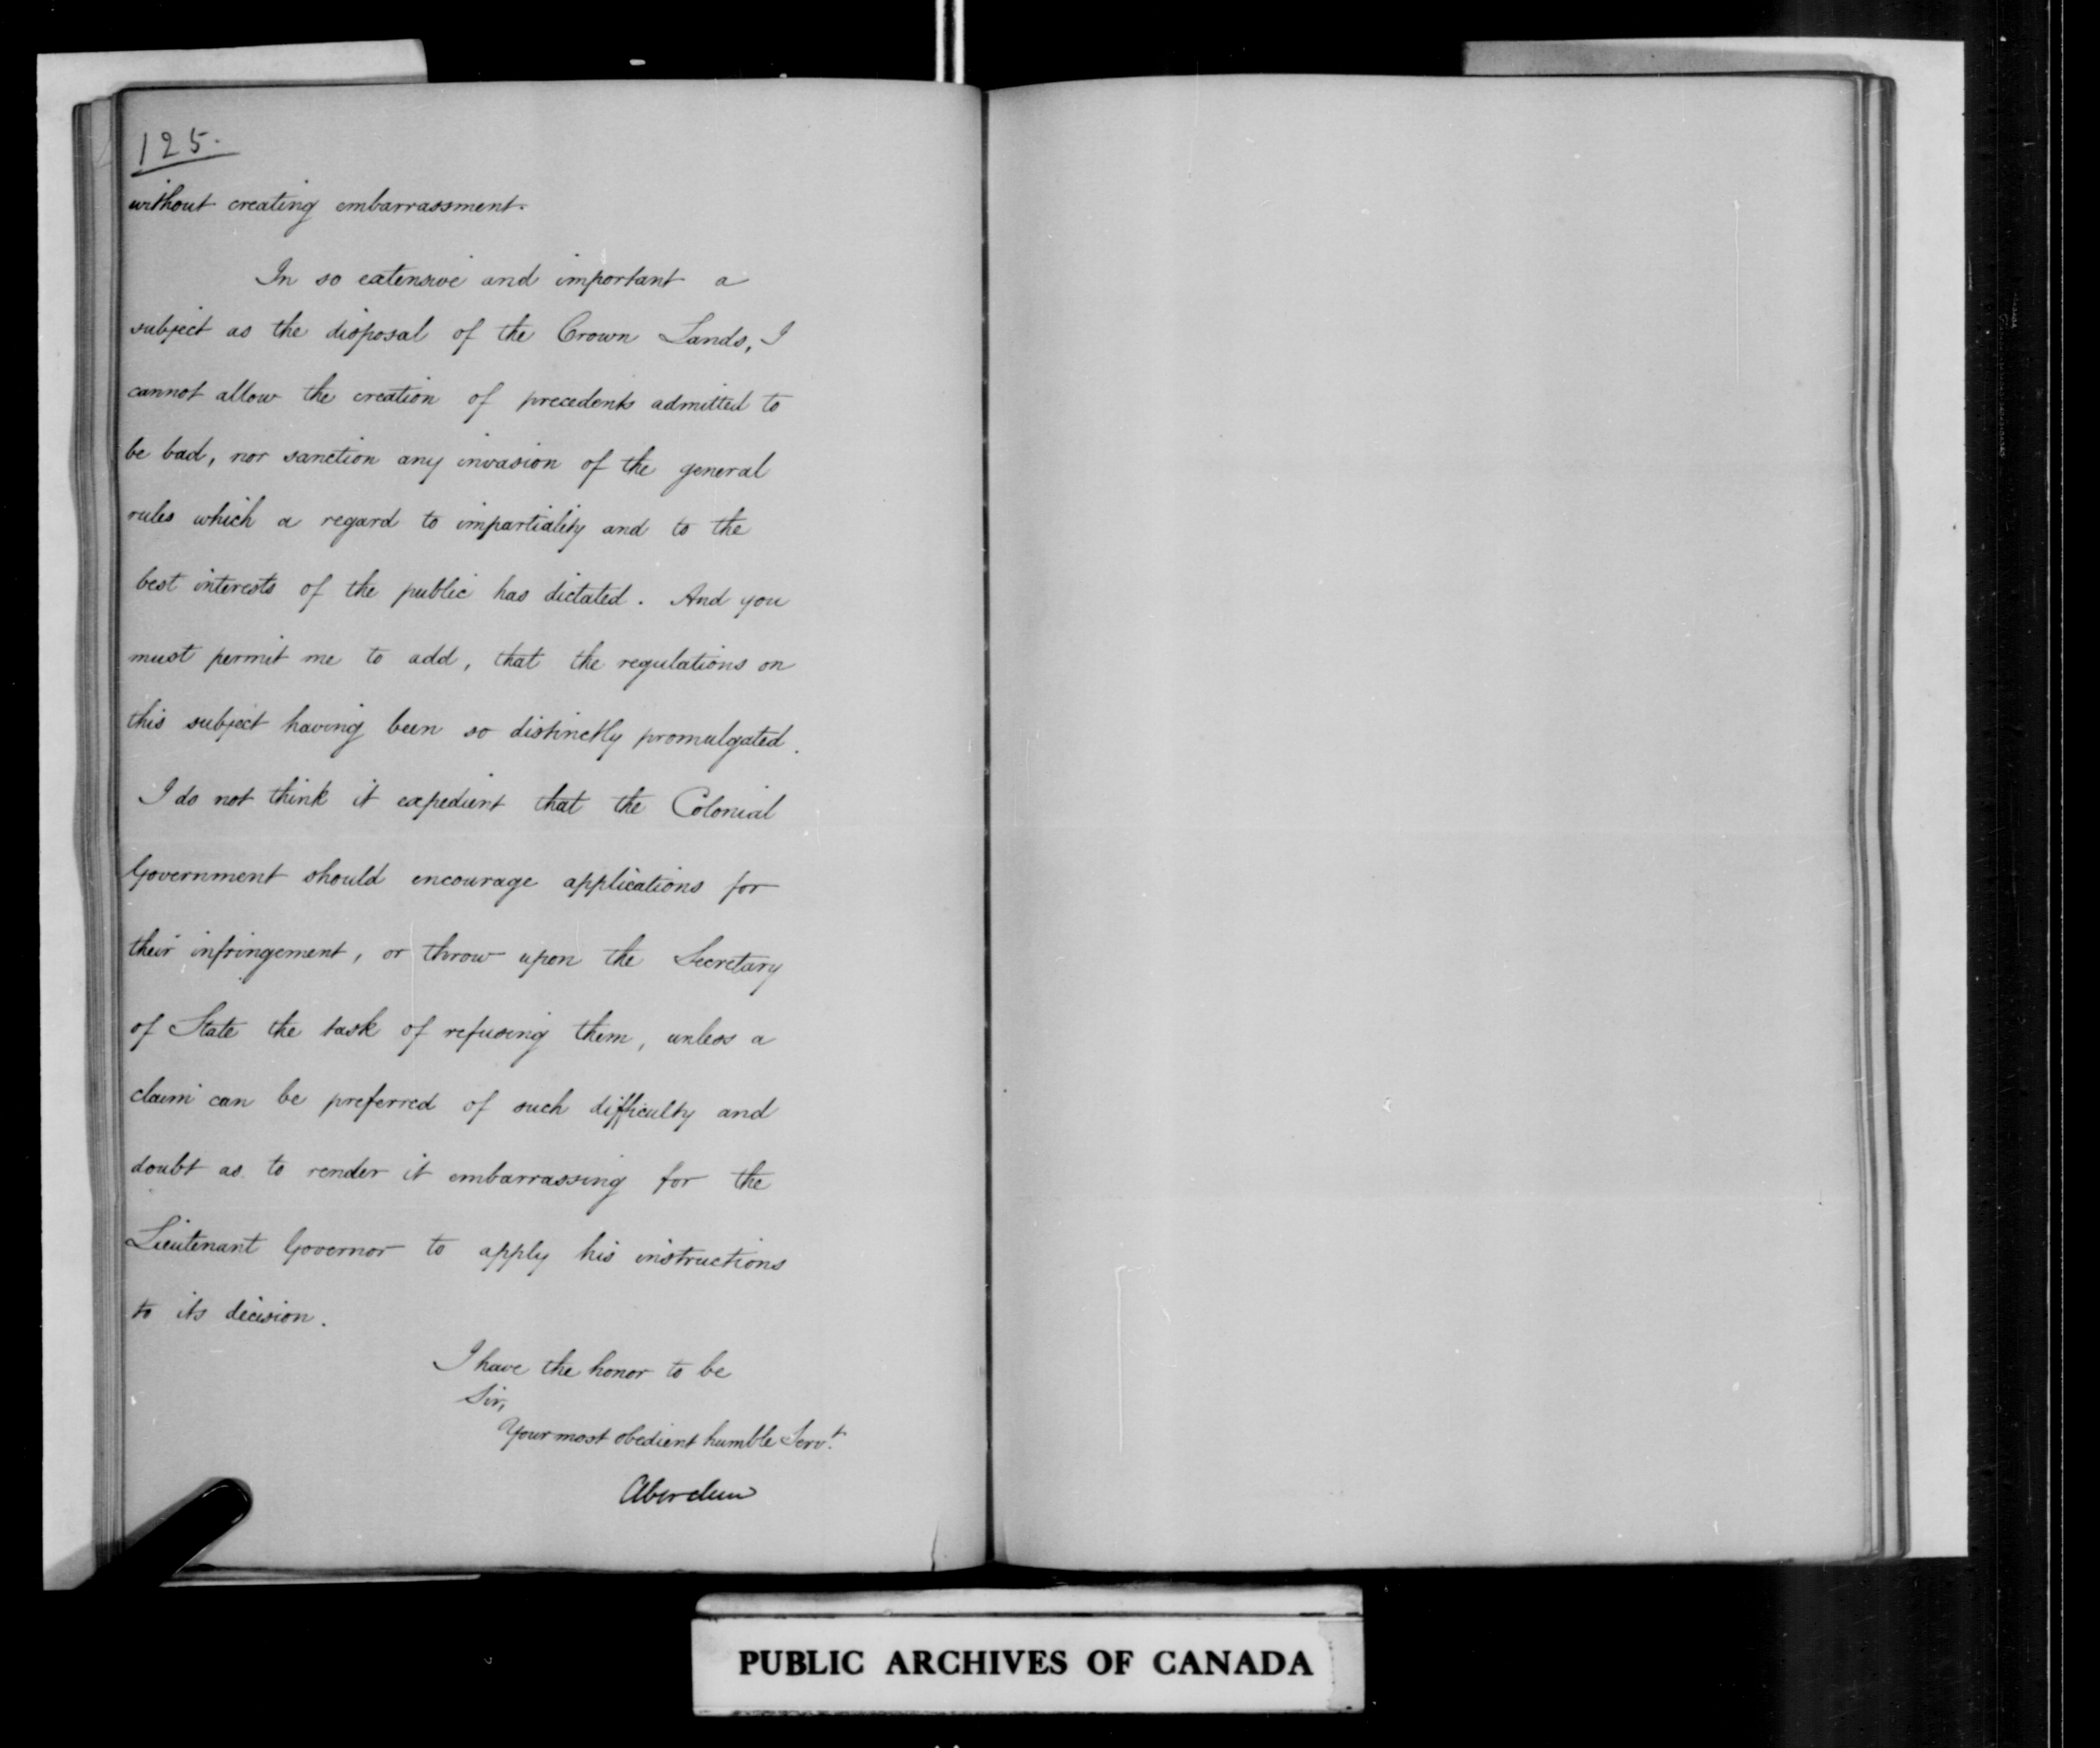 125.
without creating embarrassment.
In so extensive and important a
subject as the disposal of the Crown Lands, I
cannot allow the creation of precedents admitted to
be bad, nor sanction any invasion of the general
rules which a regard to impartiality and to the
best interests of the public has dictated. And you
must permit me to add, that the regulations on
this subject having been so distinctly promulgated.
I do not think it expedient that the Colonial
Government should encourage applications for
their infringement, or throw upon the Secretary
of State the task of refusing them, unless a
claim can be preferred of such difficulty and
doubt as to render it embarrassing for the
Lieutenant Governor to apply his instructions
to its decision.
I have the honor to be
Sir,
Your most obedient humble Servt.
Aberdeen
PUBLIC ARCHIVES OF CANADA